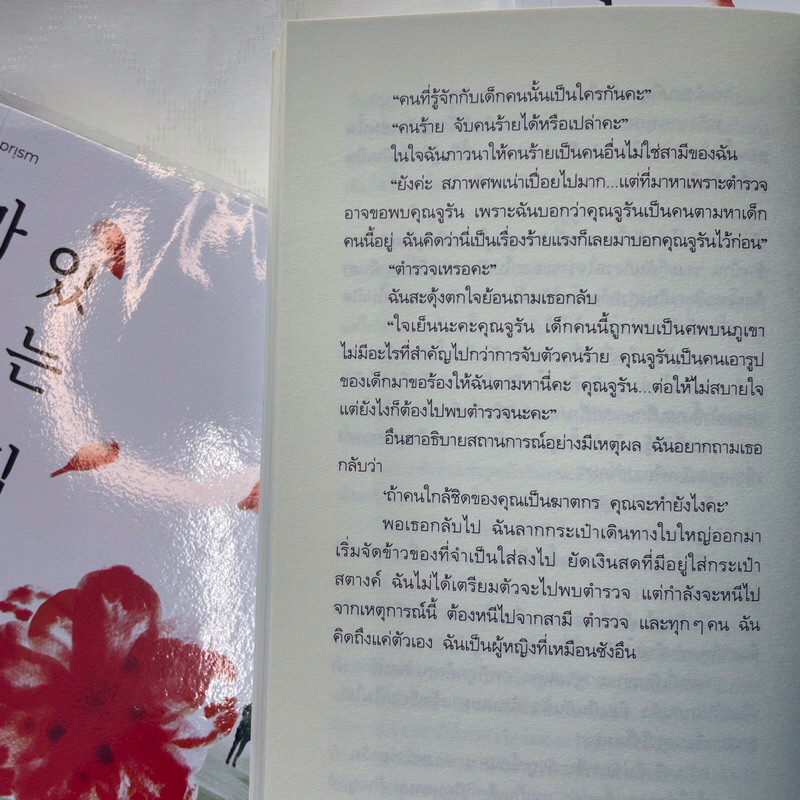 prism
가 있
는
“คนที่รู้จักกับเด็กคนนั้นเป็นใครกันคะ”
“คนร้าย จับคนร้ายได้หรือเปล่าคะ”
ในใจฉันภาวนาให้คนร้ายเป็นคนอื่นไม่ใช่สามีของฉัน
“ยังค่ะ สภาพศพเน่าเปื่อยไปมาก...แต่ที่มาหาเพราะตำรวจ
อาจขอพบคุณจูรัน เพราะฉันบอกว่าคุณจูรันเป็นคนตามหาเด็ก
คนนี้อยู่ ฉันคิดว่านี่เป็นเรื่องร้ายแรงก็เลยมาบอกคุณจูรันไว้ก่อน”
“ตำรวจเหรอคะ”
ฉันสะดุ้งตกใจย้อนถามเธอกลับ
“ใจเย็นนะคะคุณจูรัน เด็กคนนี้ถูกพบเป็นศพบนภูเขา
ไม่มีอะไรที่สำคัญไปกว่าการจับตัวคนร้าย คุณจูรันเป็นคนเอารูป
ของเด็กมาขอร้องให้ฉันตามหานี่คะ คุณจูรัน...ต่อให้ไม่สบายใจ
แต่ยังไงก็ต้องไปพบตำรวจนะคะ”
อึนฮาอธิบายสถานการณ์อย่างมีเหตุผล ฉันอยากถามเธอ
กลับว่า
‘ถ้าคนใกล้ชิดของคุณเป็นฆาตกร คุณจะทำยังไงคะ’
พอเธอกลับไป ฉันลากกระเป๋าเดินทางใบใหญ่ออกมา
เริ่มจัดข้าวของที่จำเป็นใส่ลงไป ยัดเงินสดที่มีอยู่ใส่กระเป๋า
สตางค์ ฉันไม่ได้เตรียมตัวจะไปพบตำรวจ แต่กำลังจะหนีไป
จากเหตุการณ์นี้ ต้องหนีไปจากสามี ตำรวจ และทุกๆ คน ฉัน
คิดถึงแค่ตัวเอง ฉันเป็นผู้หญิงที่เหมือนซังอึน